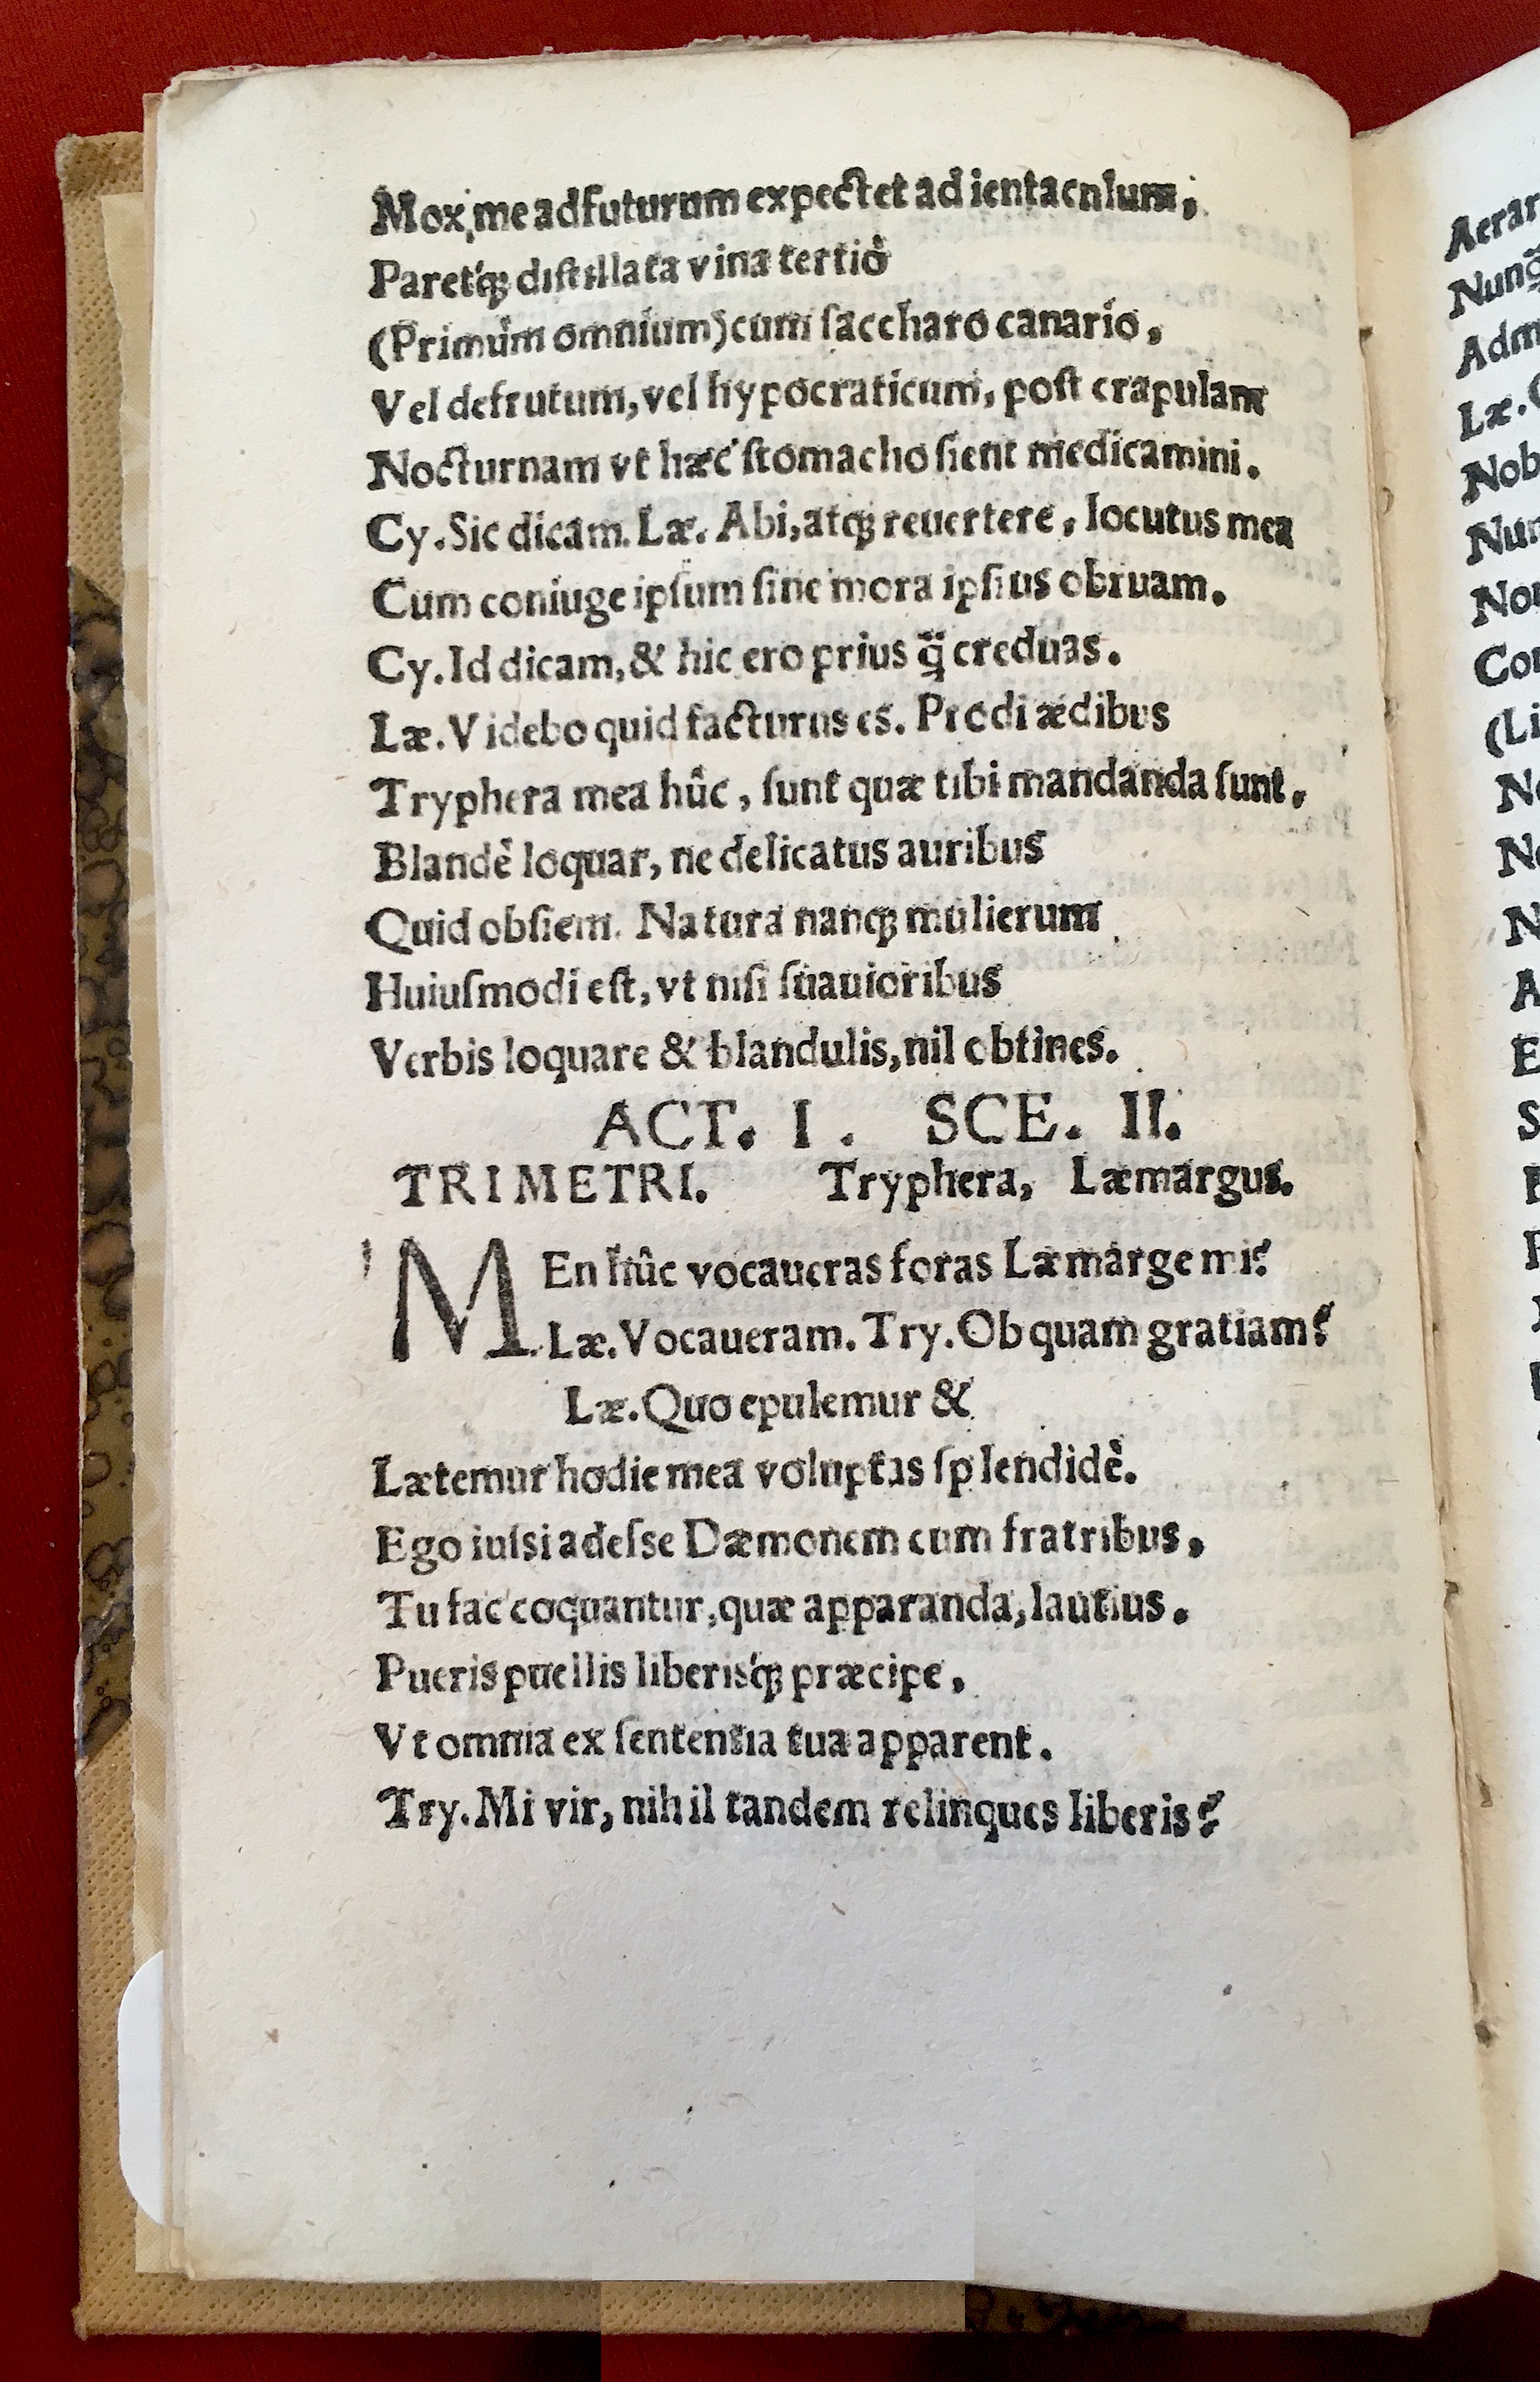 Mox me adfuturum expectet ad ientacnlum,
Paretq́ꝫ diſtillata vina tertiò
(Primùm omnium) cum ſaccharo canario,
Vel defrutum, vel hypocraticum, poſt crapulam
Nocturnam vt hæc ſtomacho ſient medicamini.
Cy. Sic dicam. Læ. Abi, atqꝫ reuertere, locutus mea
Cum coniuge ipſum ſine mora ipſius obruam.
Cy. Id dicam, & hic ero prius q̈ creduas.
Læ. Videbo quid facturus es. Prodi ædibus
Tryphera mea hûc, ſunt quæ tibi mandanda ſunt.
Blandè loquar, ne delicatus auribus
Quid obſiem. Natura nanqꝫ mulierum
Huiuſmodi eſt, vt niſi ſuauioribus
Verbis loquare & blandulis, nil obtines.
ACT. I. SCE. II.
TRIMETRI. Tryphera, Læmargus.
MEn hûc vocaueras foras Læmarge mi?
Læ. Vocaueram. Try. Ob quam gratiam?
Læ. Quo epulemur &
Lætemur hodie mea voluptas ſplendidè.
Ego iuſsi adeſse Dæmonem cum fratribus,
Tu fac coquantur, quæ apparanda, lautius.
Pueris puellis liberisq́ꝫ præcipe,
Vt omnia ex ſententia tua apparent.
Try. Mi vir, nihil tandem relinques liberis?
Aerar
Nunq̃
Adm
Læ.
Nob
Nun
Non
Con
(Li